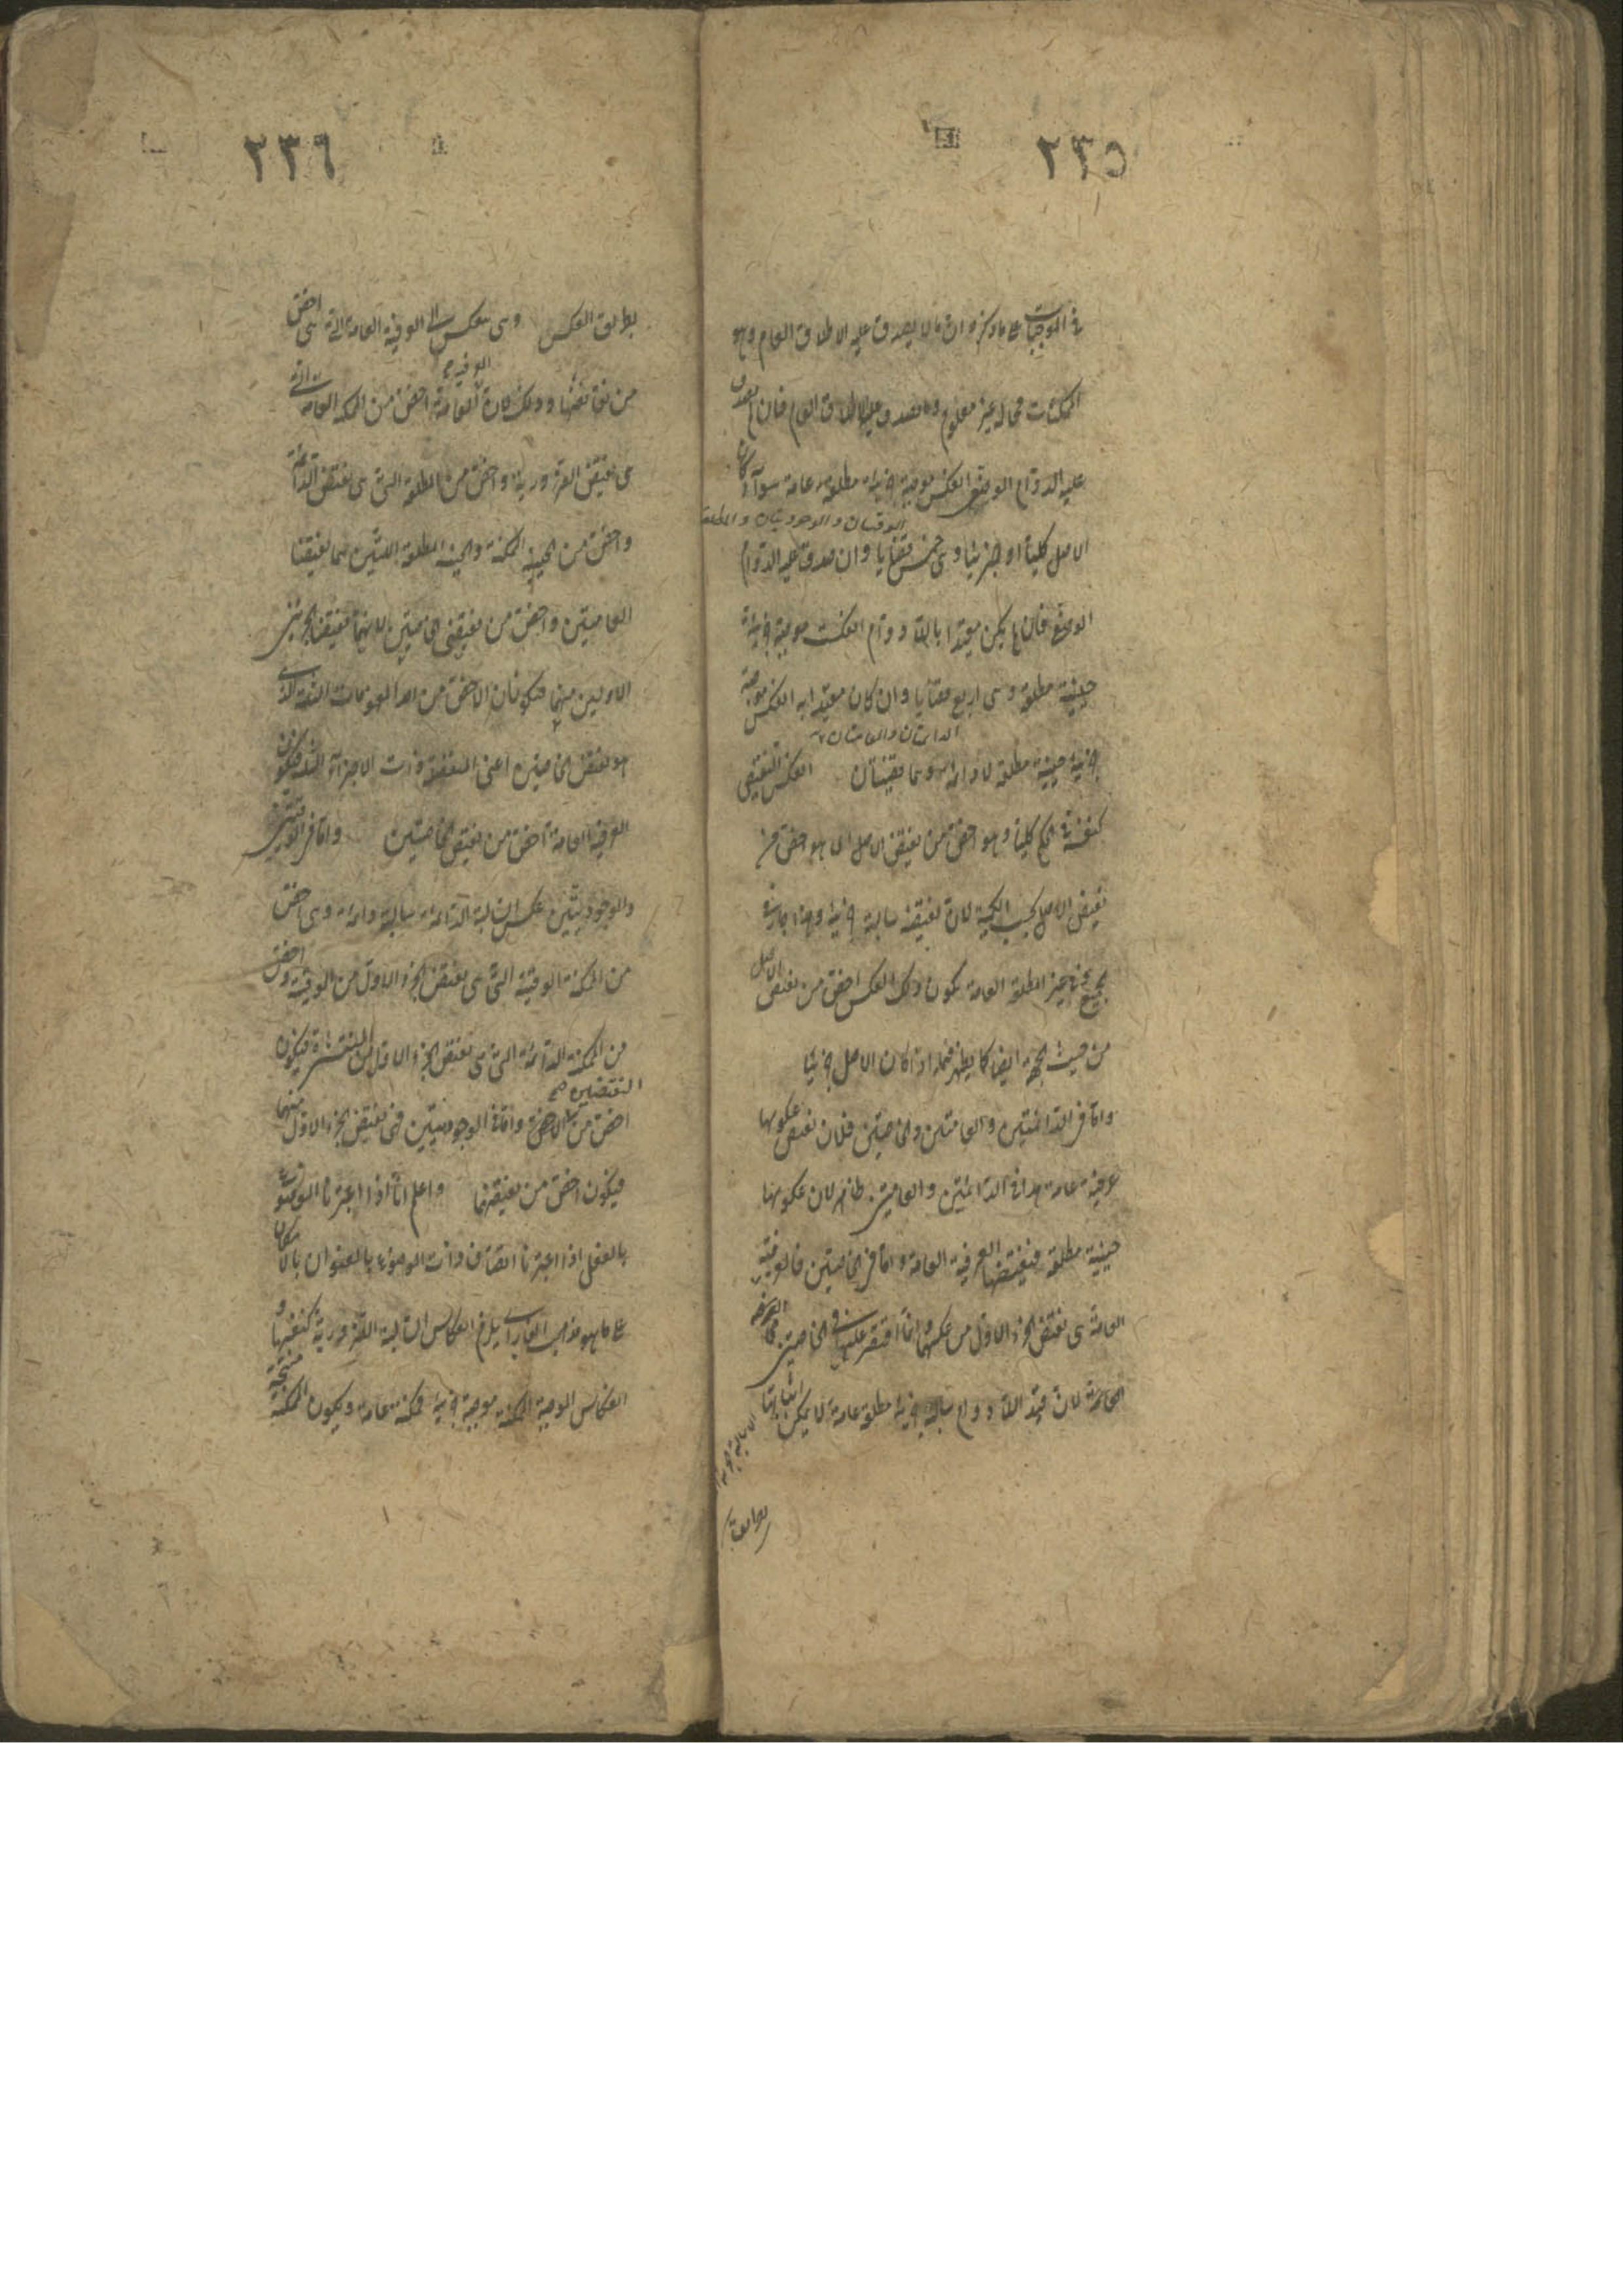 ٢٣٥
في الموجبات على ما ذكره ان ما لا يصدق عليه الاطلاق العام وهو
الممكنات فحاله غير معلوم وما يصدق عليه الاطلاق العام فان لم يصدق
عليه الدوام الوصفي انعكس موجبة جزئية مطلقة عامة سواء كان
الوقتيتان والوجوديتان والمطلقة
الاصل كليا او جزئيا وهي خمس قضايا وان صدق عليه الدوام
الوصفي فان لم يكن مقيدا باللادوام انعكست موجبة جزئية
حينية مطلقة وهي اربع قضايا وان كان مقيدا به انعكس موجبة
الدائمتان والعامتان
جزئية حينية مطلقة لا دائمة وهما قضيتان انعكس النقيض
كنفسه في الكم كليا وهو اخص من نقيض الاصل اي هو اخص من
نقيض الاصل بحسب الكمية لان نقيضه سالبة جزئية وهذا جار في
الجميع غير المطلقة العامة يكون ذلك العكس اخص من نقيض الاصل
من حيث الجهة ايضا كما يظهر فيما اذا كان الاصل جزئيا
واما في الدائمتين والعامتين والخاصتين فلان نقيض عكوسها
عرفية عامة هذا في الدائمتين والعامتين ظاهر لان عكوسها
حينية مطلقة فنقيضها العرفية العامة واما في الخاصتين فالعرفية
العامة هي نقيض الجزء الاول من عكسهما وانما اقتصر عليه في الخاصتين
لان قيد اللادوام سالبة جزئية مطلقة عامة لا يمكن اثباتها
بطريق
٢٣٦
بطريق العكس وهي تنعكس الى العرفية العامة التي هي اخص
العرفية
من نقائضها وذلك لان العامة اخص من الممكنة العامة التي
هي نقيض الضرورية واخص من المطلقة التي هي نقيض الدائمة
واخص من الحينية الممكنة والحينية المطلقة اللتين هما نقيضا
العامتين واخص من نقيضي الخاصتين لانهما نقيضا الجزئين
الاولين منهما فتكونان الاخص من احد المفهومات الثلاثة الذي
هو نقيض الخاصتين اعني المنفصلة ذات الاجزاء الثلاثة فيكون
العرفية العامة اخص من نقيض الخاصتين واما في الوقتيتين
والوجوديتين عكس السالبة الدائمة سالبة دائمة وهي اخص
من الممكنة الوقتية التي هي نقيض الجزء الاول من الوقتية واخص
من الممكنة الدائمة التي هي نقيض الجزء الاول من المنتشرة فيكون
النقيضين
اخص من الاخص واما في الوجوديتين فهي نقيض الجزء الاول منهما
فيكون اخص من نقيضهما واعلم انا اذا اعتبرنا الموضوع
بالفعل اذا اعتبرنا اتصاف ذات الموضوع بالعنوان بالامكان
على ما هو مذهب الفارابي يلزم انعكاس السالبة الضرورية كنفسها و
انعكاس الموجبة الممكنة موجبة جزئية ممكنة عامة ويكون الممكنة منتجة